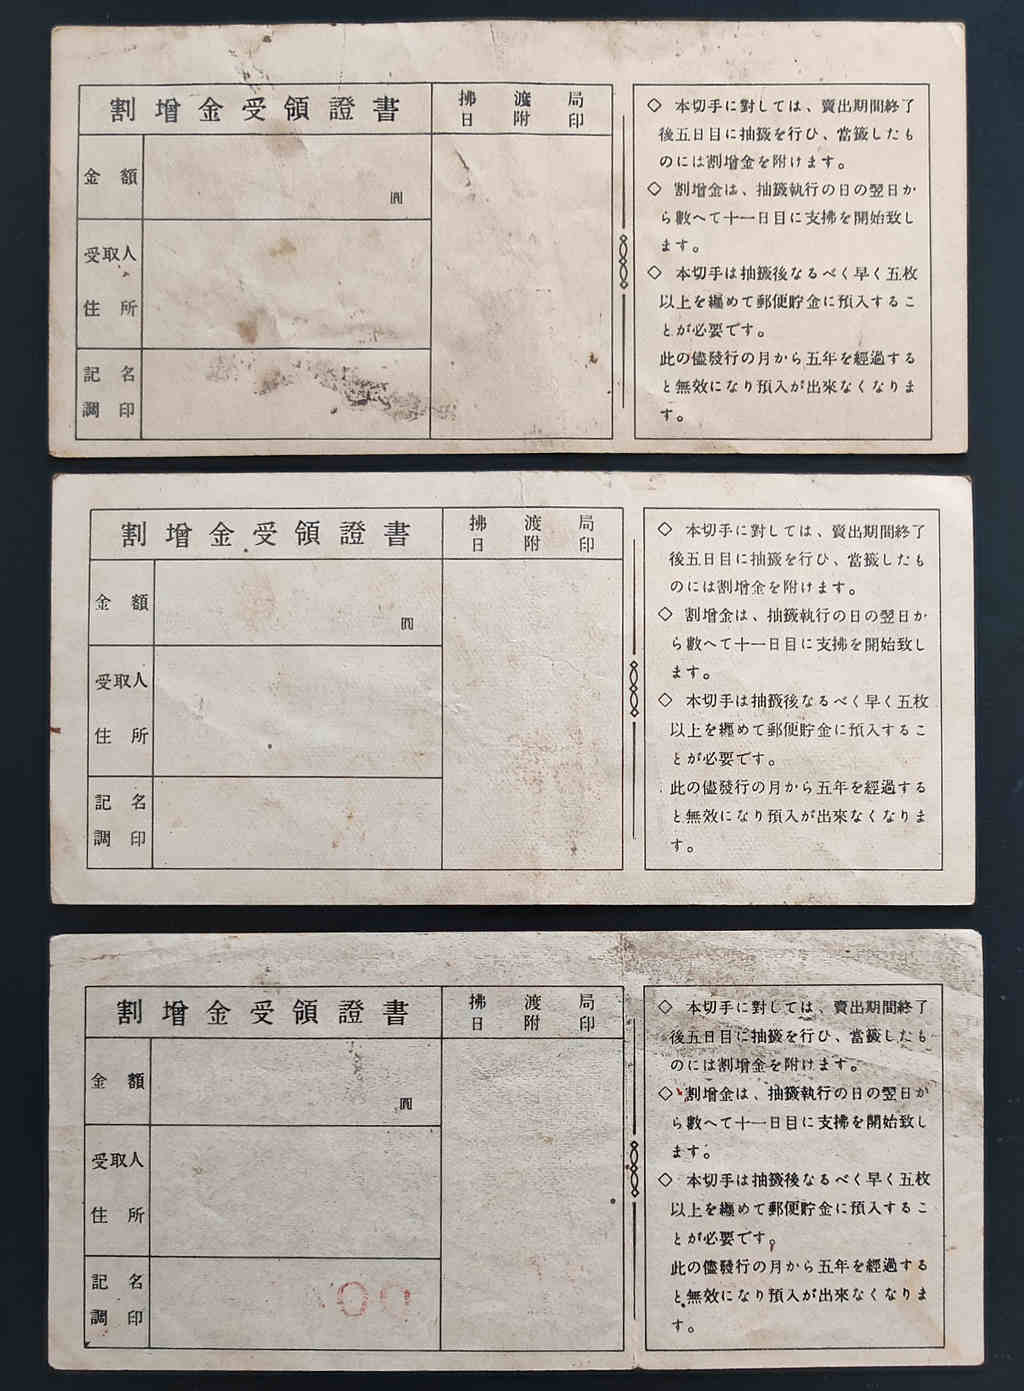 割增金受領證書
拂渡局
日附印
金額
圓
受取人
住所
記名
調印
◇ 本切手に對しては、賣出期間終了
後五日目に抽籤を行ひ、當籤したも
のには割增金を附けます。
◇ 割增金は、抽籤執行の日の翌日か
ら數へて十一日目に支拂を開始致し
ます。
◇ 本切手は抽籤後なるべく早く五枚
以上を纏めて郵便貯金に預入するこ
とが必要です。
此の儘發行の月から五年を經過する
と無效になり預入が出來なくなりま
す。
割增金受領證書
拂渡局
日附印
金額
圓
受取人
住所
記名
調印
◇ 本切手に對しては、賣出期間終了
後五日目に抽籤を行ひ、當籤したも
のには割增金を附けます。
◇ 割增金は、抽籤執行の日の翌日か
ら數へて十一日目に支拂を開始致し
ます。
◇ 本切手は抽籤後なるべく早く五枚
以上を纏めて郵便貯金に預入するこ
とが必要です。
此の儘發行の月から五年を經過する
と無效になり預入が出來なくなりま
す。
割增金受領證書
拂渡局
日附印
金額
圓
受取人
住所
記名
調印
◇ 本切手に對しては、賣出期間終了
後五日目に抽籤を行ひ、當籤したも
のには割增金を附けます。
◇ 割增金は、抽籤執行の日の翌日か
ら數へて十一日目に支拂を開始致し
ます。
◇ 本切手は抽籤後なるべく早く五枚
以上を纏めて郵便貯金に預入するこ
とが必要です。
此の儘發行の月から五年を經過する
と無效になり預入が出來なくなりま
す。